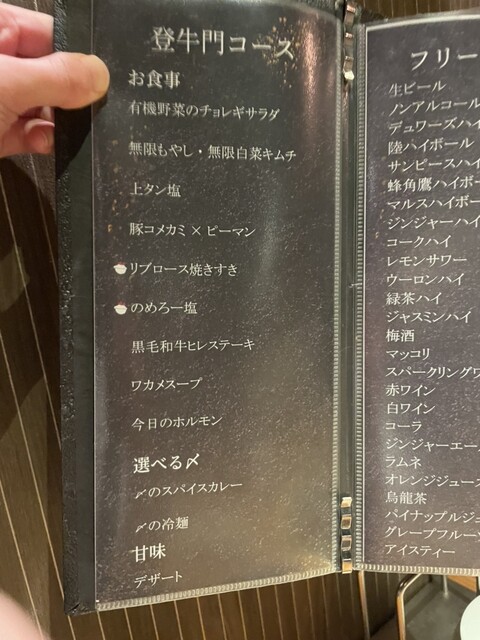 登牛門コース
お食事
有機野菜のチョレギサラダ
無限もやし・無限白菜キムチ
上タン塩
豚コメカミ×ピーマン
リブロース焼きすき
のめろー塩
黒毛和牛ヒレステーキ
ワカメスープ
今日のホルモン
選べる〆
〆のスパイスカレー
〆の冷麺
甘味
デザート
フリー
生ビール
ノンアルコール
デュワーズハイ
陸ハイボール
サンピースハイ
蜂角鷹ハイボー
マルスハイボー
ジンジャーハイ
コークハイ
レモンサワー
ウーロンハイ
緑茶ハイ
ジャスミンハイ
梅酒
マッコリ
スパークリングワ
赤ワイン
白ワイン
コーラ
ジンジャーエー
ラムネ
オレンジジュー
烏龍茶
パイナップルジュ
グレープフルー
アイスティー